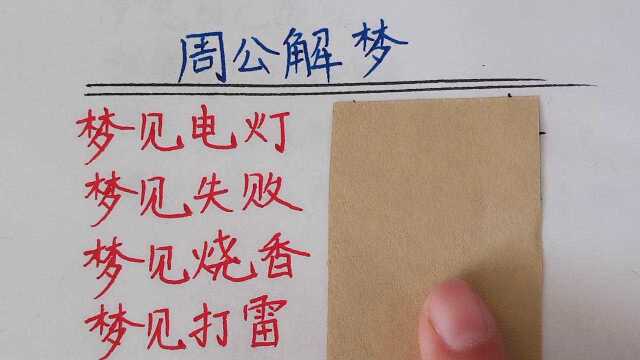 周公解梦
梦见电灯
梦见失败
梦见烧香
梦见打雷